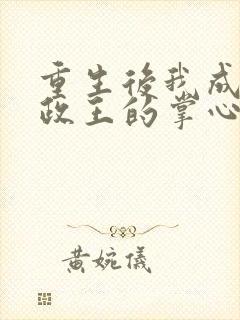 重生後我成
政王的掌心
黃婉儀